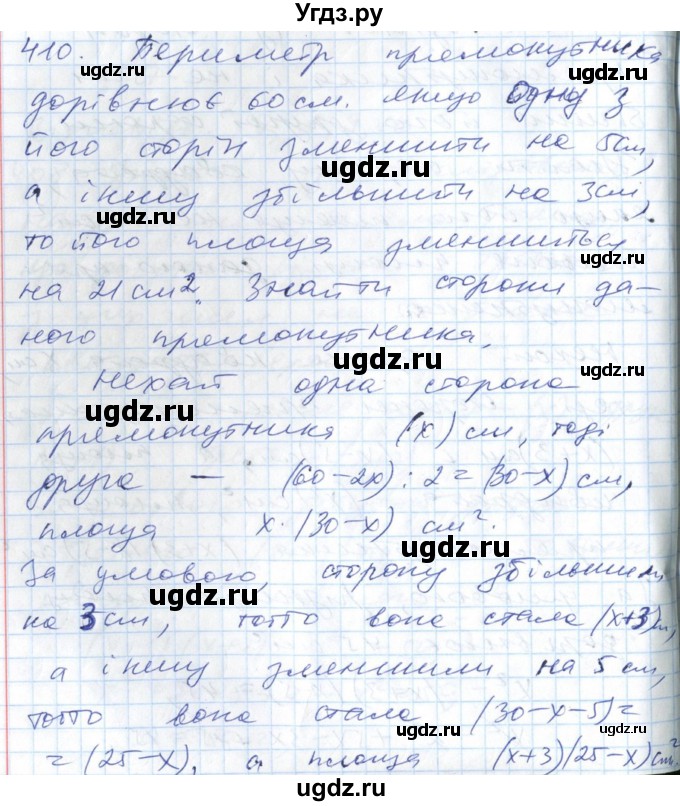 Угдз.ру
410. Периметр прямокутника
дорівнює 60 см. Якщо одну з
його сторін зменшити на 5см,
а іншу збільшити на 3см,
то його площа зменшиться
на 21 см². Знайти сторони да-
ного прямокутника.
Нехай одна сторона
прямокутника (x) см, тоді
друга — (60-2x):2=(30-x) см,
площа x·(30-x) см².
За умовою, сторону збільшили
на 3 см, тобто вона стала (x+3)см,
а іншу зменшили на 5 см,
тобто вона стала (30-x-5)=
=(25-x), а площа (x+3)(25-x)см².